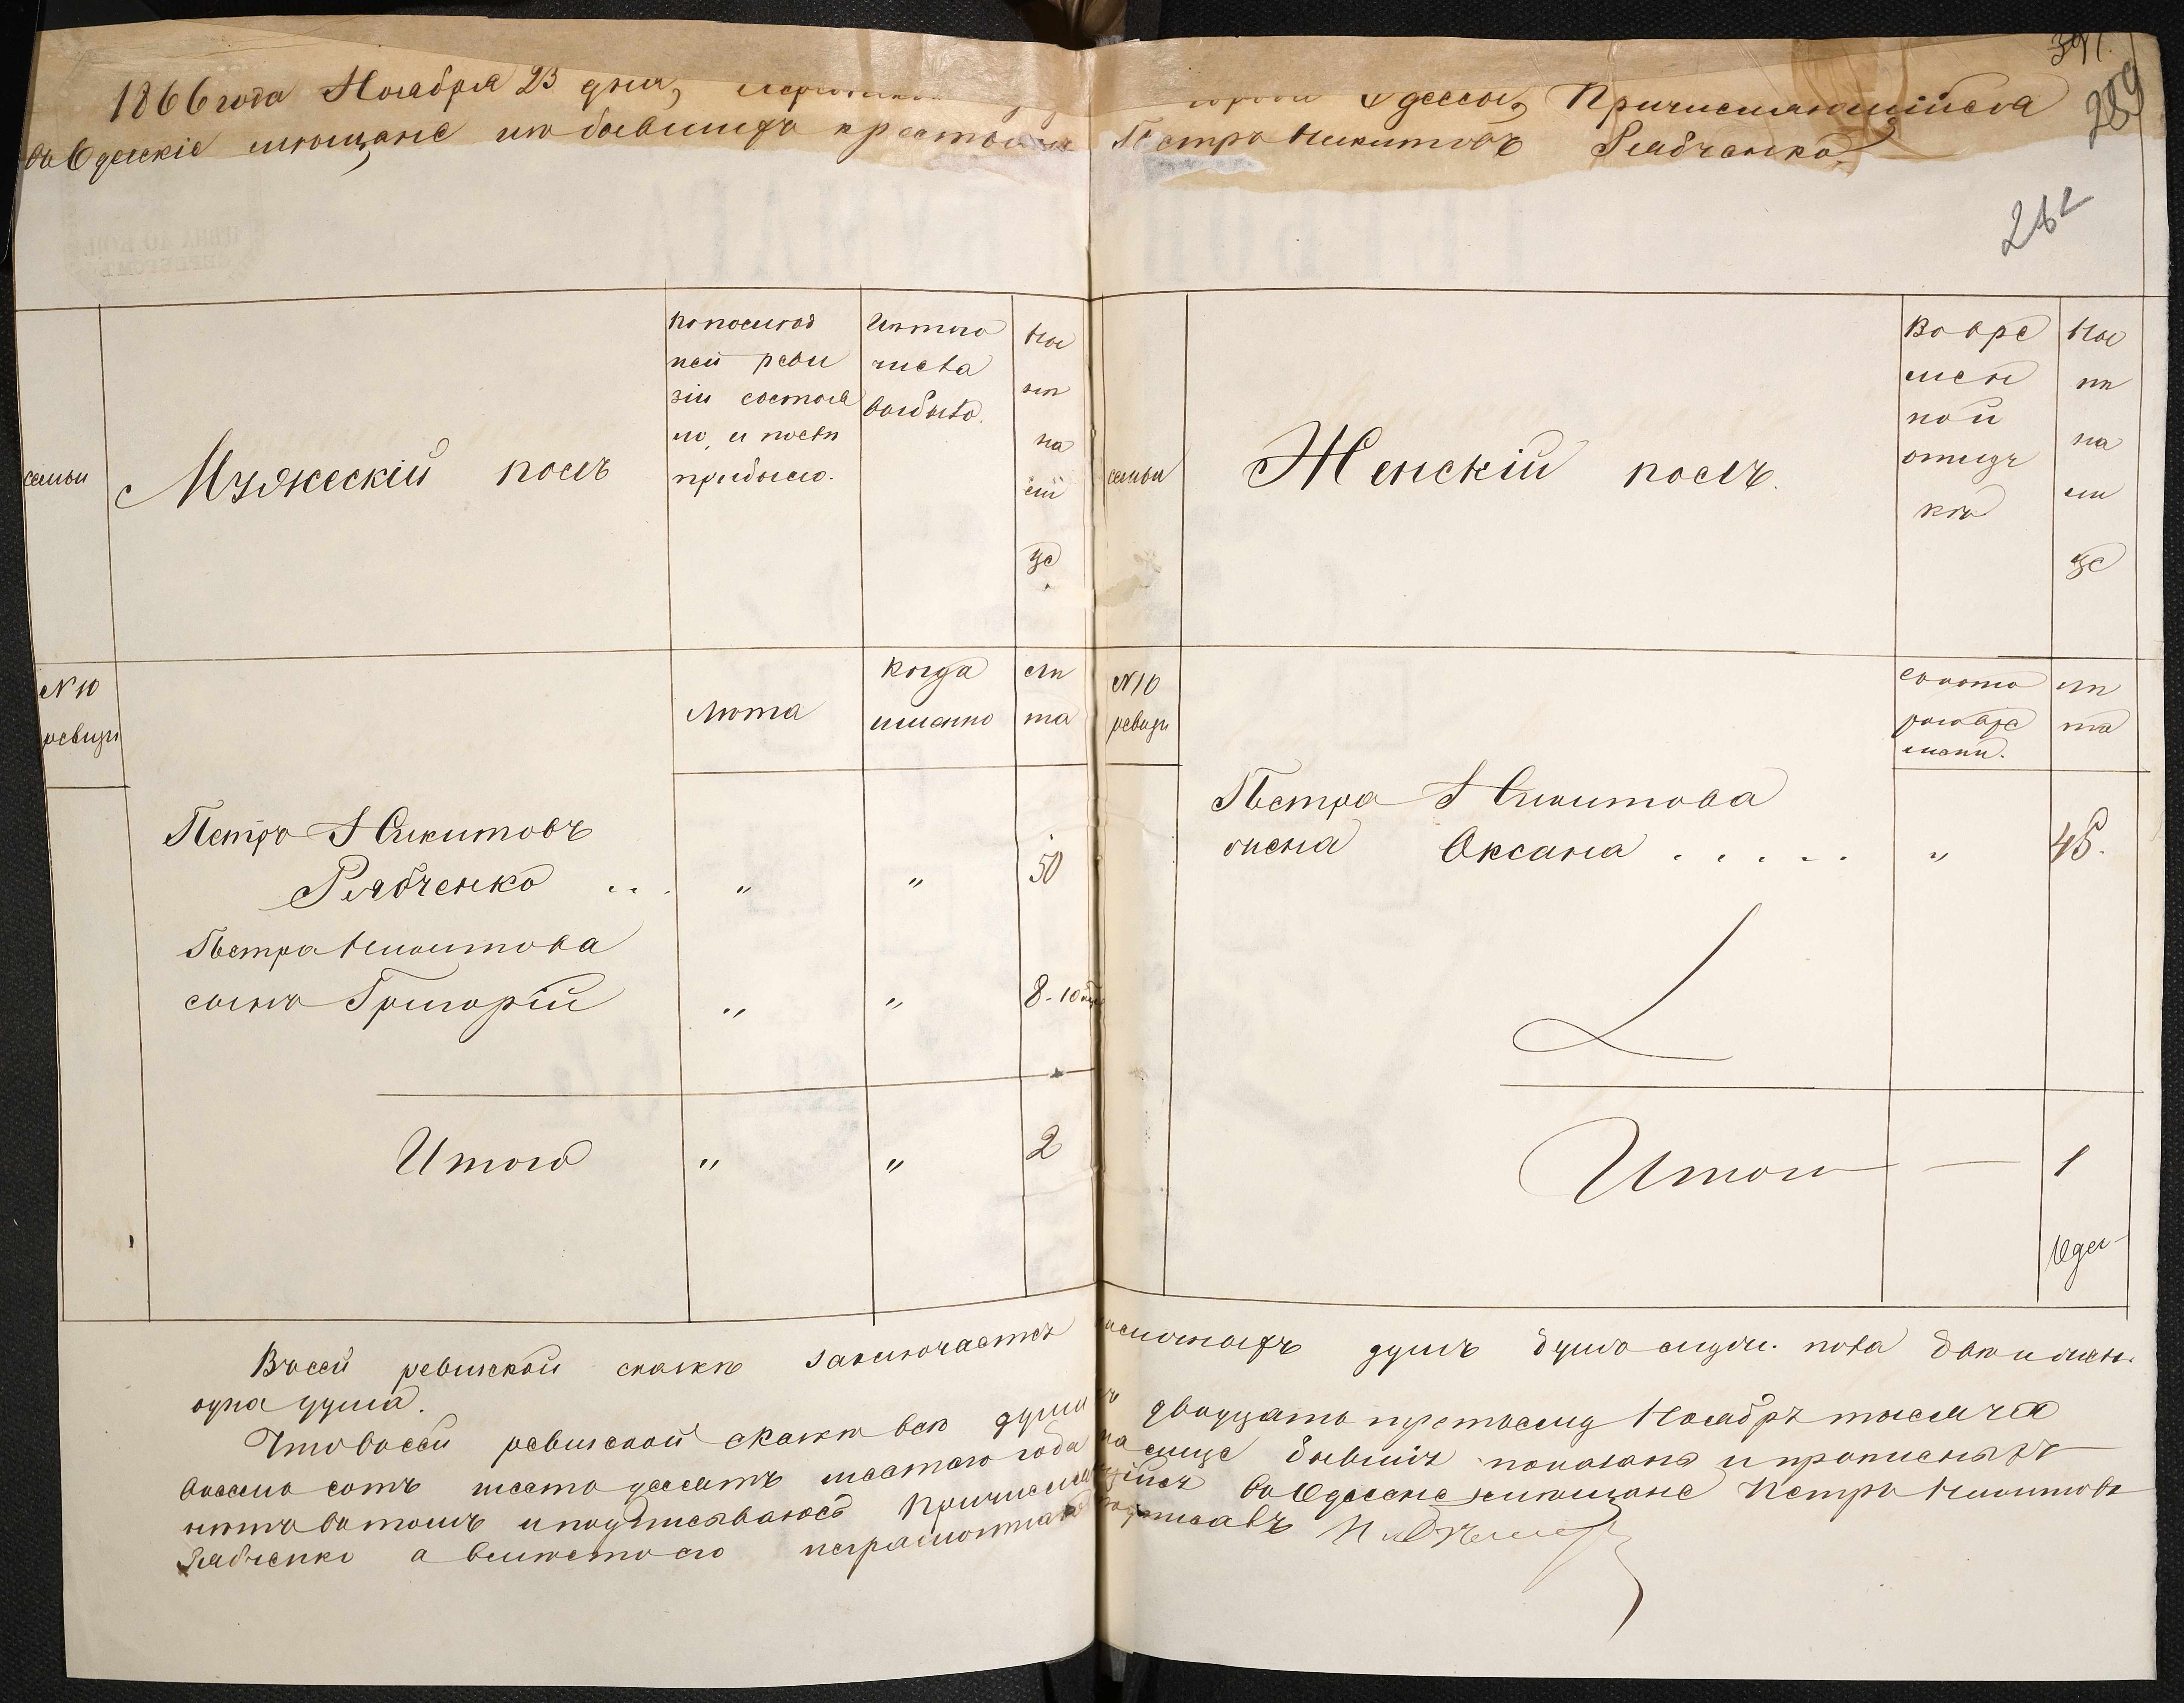 391.
289
1866 года Ноября 23 дня, Херсонской города Одессы, Причисляющійся
въ Одесскіе мещане изъ бывшихъ крестьянъ Петръ Никитовъ Рябченко.
282
семьи
Мужескій полъ
По послед
ней реви
зіи состоя
ло, и послѣ
прибыло.
Изъ того
числа
выбыло.
Ны
нѣ
на
ли
це
№ 10
ревизіи
Лѣта
когда
именно
Лѣ
та
Петръ Никитовъ
Рябченко . . . " " 50
Петра Никитова
сынъ Григорій " " 8-10
Итого " " 2
семьи
Женскій полъ.
Во вре
мен
ной
отлуч
кѣ
Ны
нѣ
на
ли
це
№ 10
ревизіи
съ кото
раго вре
мени.
Лѣ
та
Петра Никитова
жена Оксана . . . . . " 45.
Итого — 1
Одна
Въ сей ревизской сказкѣ заключается наличныхъ душъ мужеска пола двѣ и женск.
одна душа.
Что въ сей ревизской сказкѣ всѣ души къ двадцать третьему Ноября тысяча
восемь сотъ шестьдесятъ шестаго года на лице бывшія показаны и прописныхъ
нѣтъ въ томъ и подписываюсь Причисляющійся въ Одесскіе мещане Петръ Никитовъ
Рябченко а вместо его неграмотнаго подписалъ